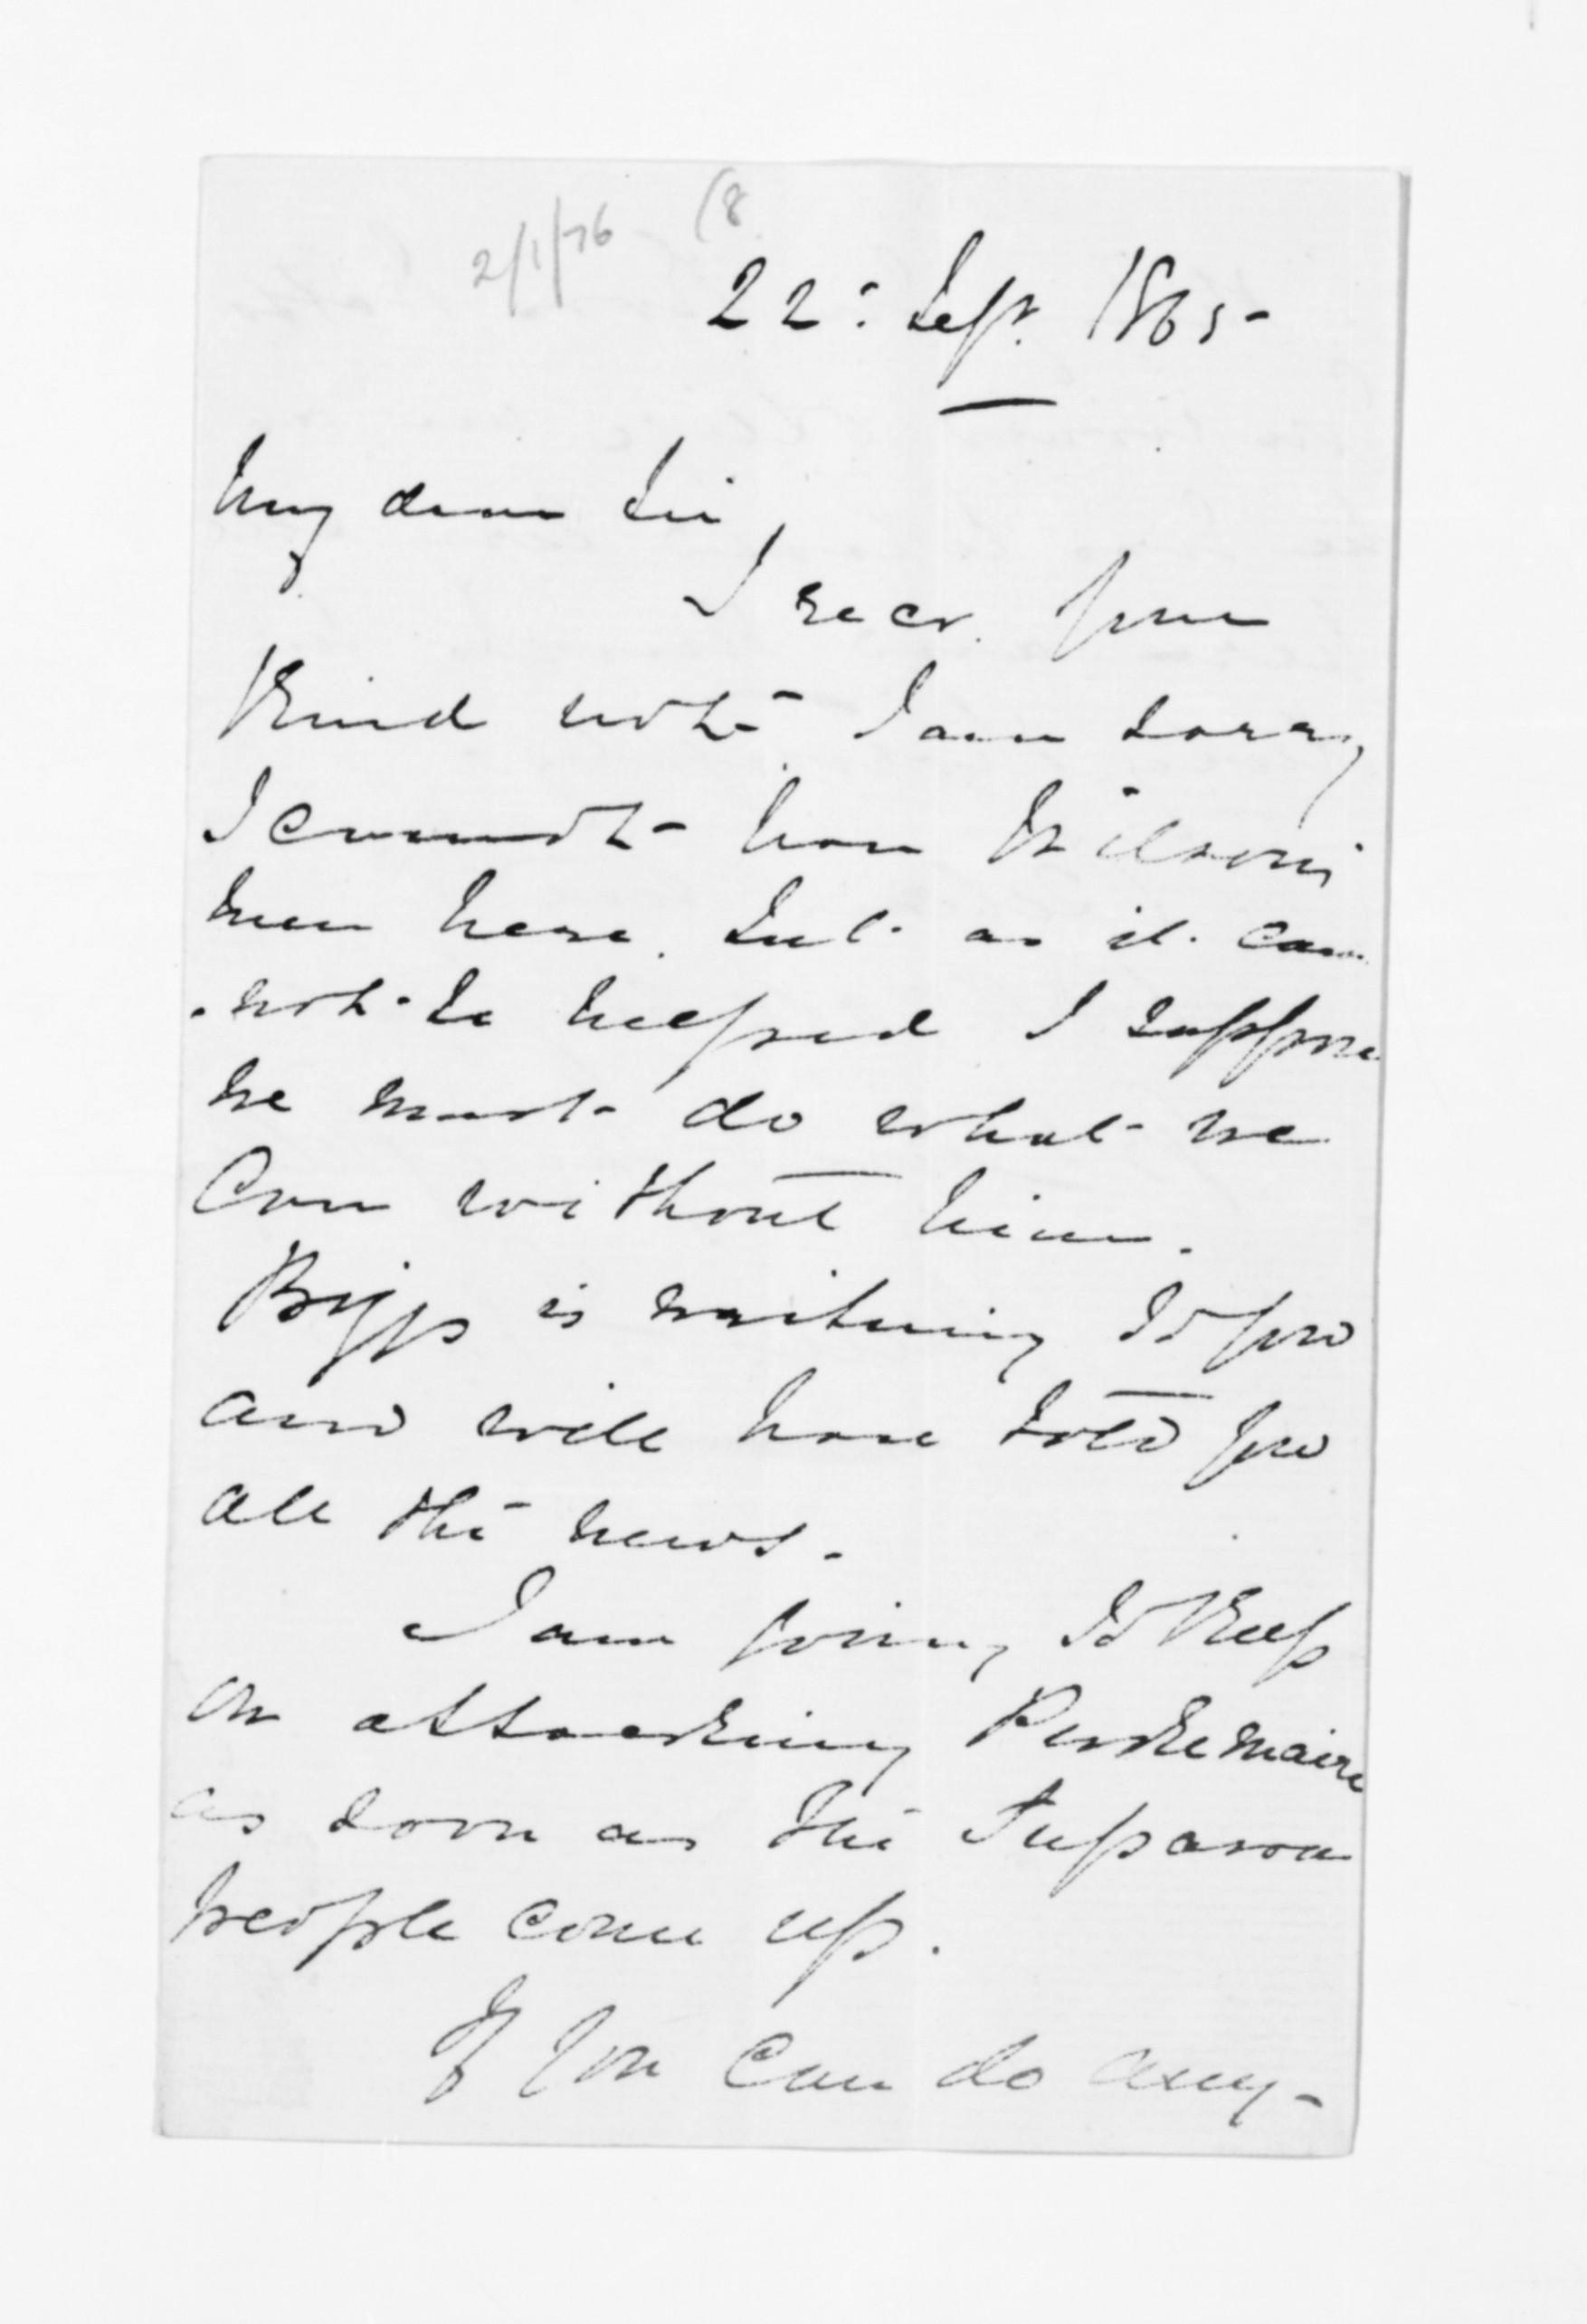 2/1/76 (8
22: Sept. 1865-
My dear Sir,
I recd. your
Kind note I am sorry
I cannot have Wilson's
men here. but as it can
-not be helped I suppose
we must do what we
Can without him.
Biggs is writing to you
and will have told you
all the news.
I am going to keep
on attacking Pukemaire
as soon as the Tuparoa
people come up.
If you can do any-